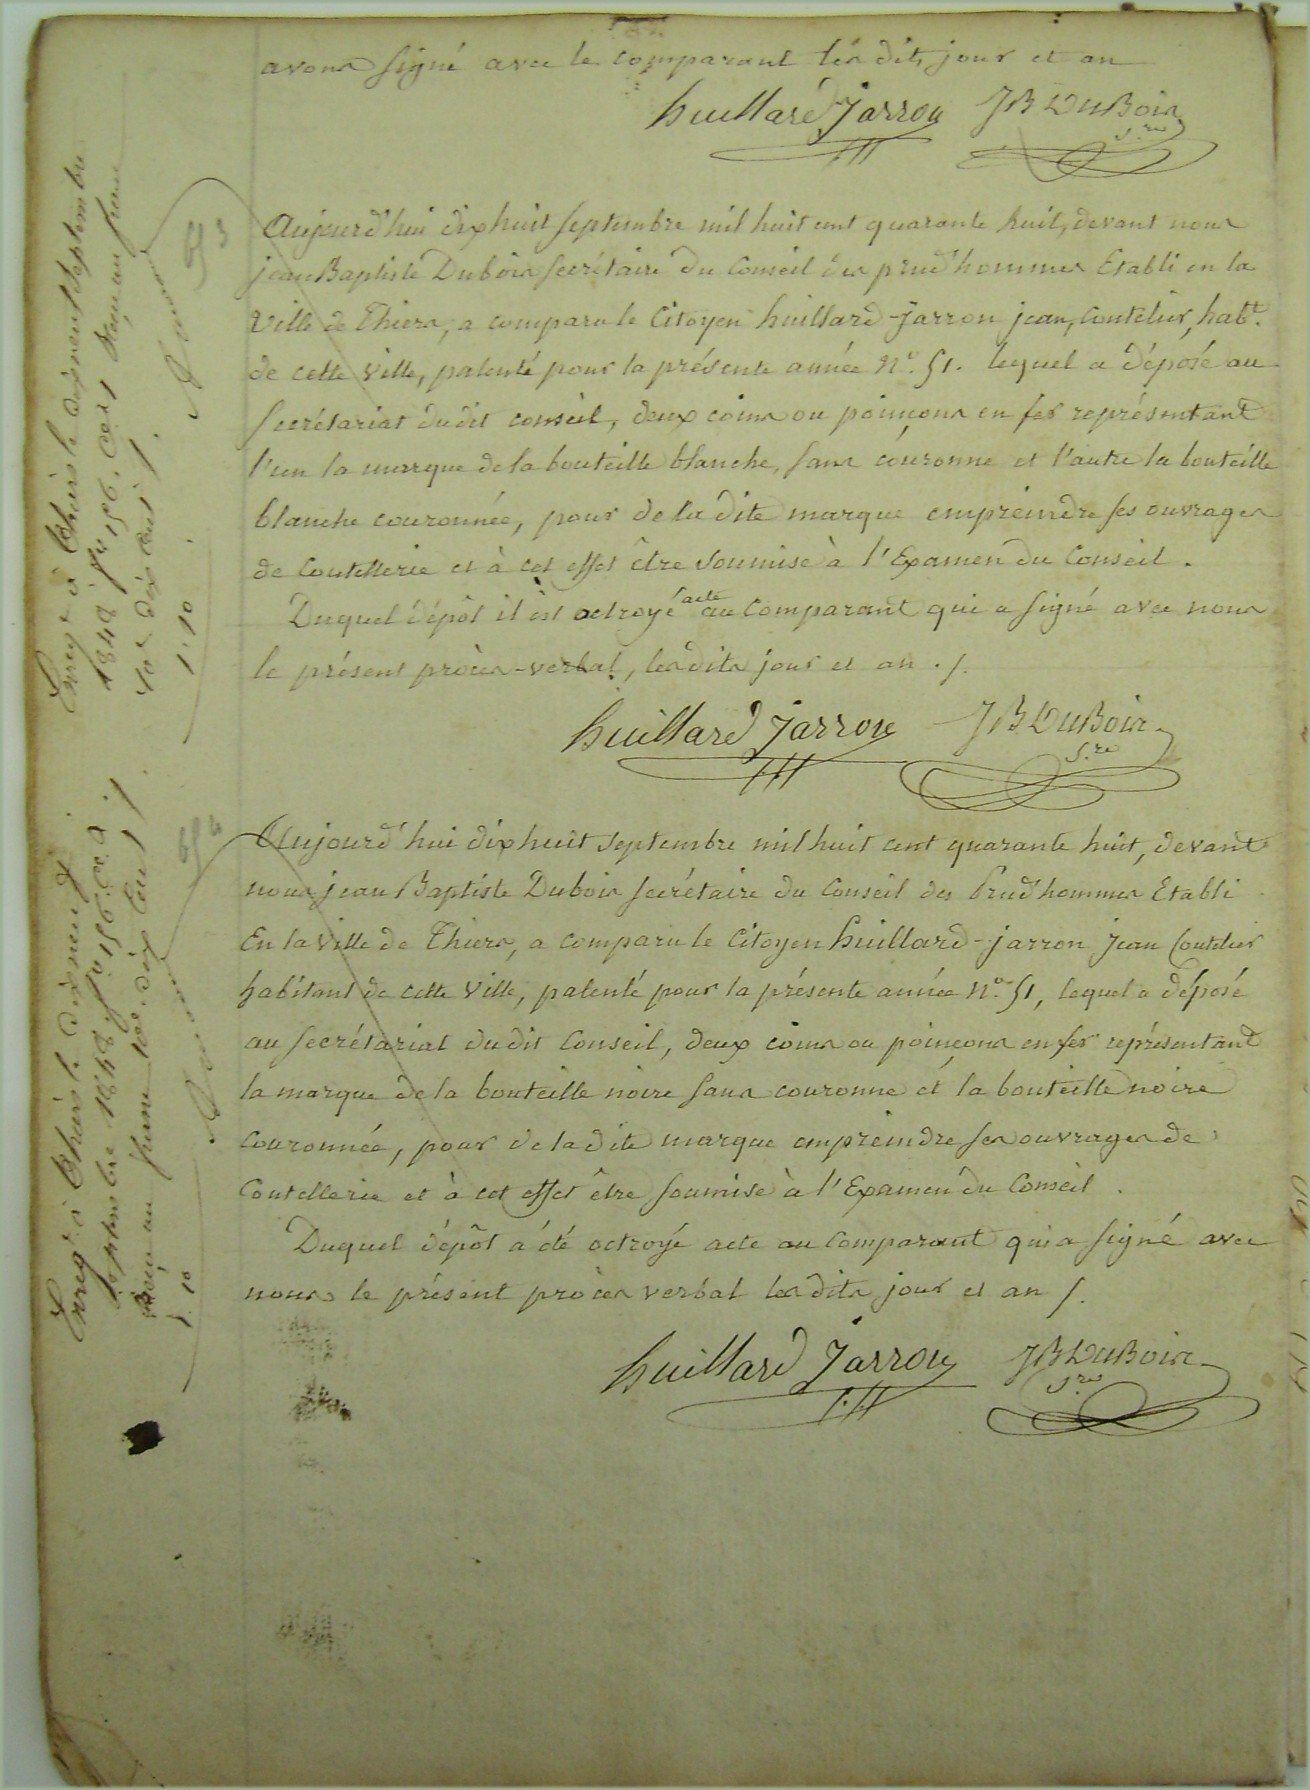 avons signé avec le comparant les dits jour et an
huillard Jarron JB DuBois
S.re
Aujourd'hui dix huit septembre mil huit cent quarante huit, devant nous
jean Baptiste Dubois secrétaire du Conseil des prud'hommes Etabli en la
Ville de Thiers, a comparu le Citoyen huillard-jarron jean, Coutelier, habt.
de cette Ville, patenté pour la présente année N.o 51. lequel a déposé au
secrétariat dudit conseil, deux coins ou poinçons en fer représentant
l'un la marque de la bouteille blanche, sans couronne et l'autre la bouteille
blanche couronnée, pour de la dite marque empreindre ses ouvrages
de Coutellerie et à cet effet être soumise à l'Examen du Conseil.
Duquel dépôt il est octroyé acte au Comparant qui a signé avec nous
le présent procès-verbal, les dits jour et an ./.
huillard Jarron JB DuBois
S.re
Aujourd'hui dix huit septembre mil huit cent quarante huit, devant
nous jean Baptiste Dubois secrétaire du Conseil des Prud'hommes Etabli
En la Ville de Thiers, a comparu le Citoyen huillard-jarron Jean Coutelier
habitant de cette Ville, patenté pour la présente année N.o 51, lequel a déposé
au secrétariat dudit Conseil, deux coins ou poinçons en fer représentant
la marque de la bouteille noire sans couronne et la bouteille noire
couronnée, pour de la dite marque empreindre ses ouvrages de
Coutellerie et à cet effet être soumise à l'Examen du Conseil.
Duquel dépôt a été octroyé acte au Comparant qui a signé avec
nous le présent procès verbal les dits jour et an /.
huillard Jarron JB DuBois
S.re
Enreg.é à Thiers le dixneuf septembre
1848 f.o 156. Reçu un franc
10e dix cent /.
1.10
Enreg.é à Thiers le dixneuf
septembre 1848 f.o 156
Reçu un franc 10e dix cent /.
1.10